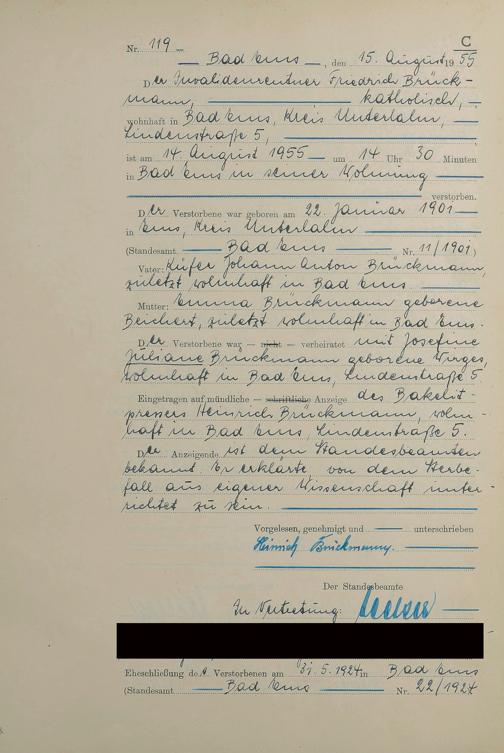 C
Nr. 119
Bad Ems, den 15. August 1955
Der Invalidenrentner Friedrich Brück-
mann, katholisch,
wohnhaft in Bad Ems, Kreis Unterlahn,
Lindenstraße 5,
ist am 14. August 1955 um 14 Uhr 30 Minuten
in Bad Ems in seiner Wohnung
verstorben.
Der Verstorbene war geboren am 22. Januar 1901
in Ems, Kreis Unterlahn
(Standesamt Bad Ems Nr. 11/1901)
Vater: Küfer Johann Anton Brückmann,
zuletzt wohnhaft in Bad Ems
Mutter: Emma Brückmann geborene
Beichert, zuletzt wohnhaft in Bad Ems.
Der Verstorbene war — nicht — verheiratet mit Josefine
Juliane Brückmann geborene Wirges,
wohnhaft in Bad Ems, Lindenstraße 5
Eingetragen auf mündliche — schriftliche Anzeige des Bakelit-
pressers Heinrich Brückmann, wohn-
haft in Bad Ems, Lindenstraße 5.
Der Anzeigende ist dem Standesbeamten
bekannt. Er erklärte, von dem Sterbe-
fall aus eigener Wissenschaft unter-
richtet zu sein.
Vorgelesen, genehmigt und unterschrieben
Heinrich Brückmann.
Der Standesbeamte
In Vertretung:
Eheschließung der Verstorbenen am 31.5.1924 in Bad Ems
(Standesamt Bad Ems Nr. 22/1924